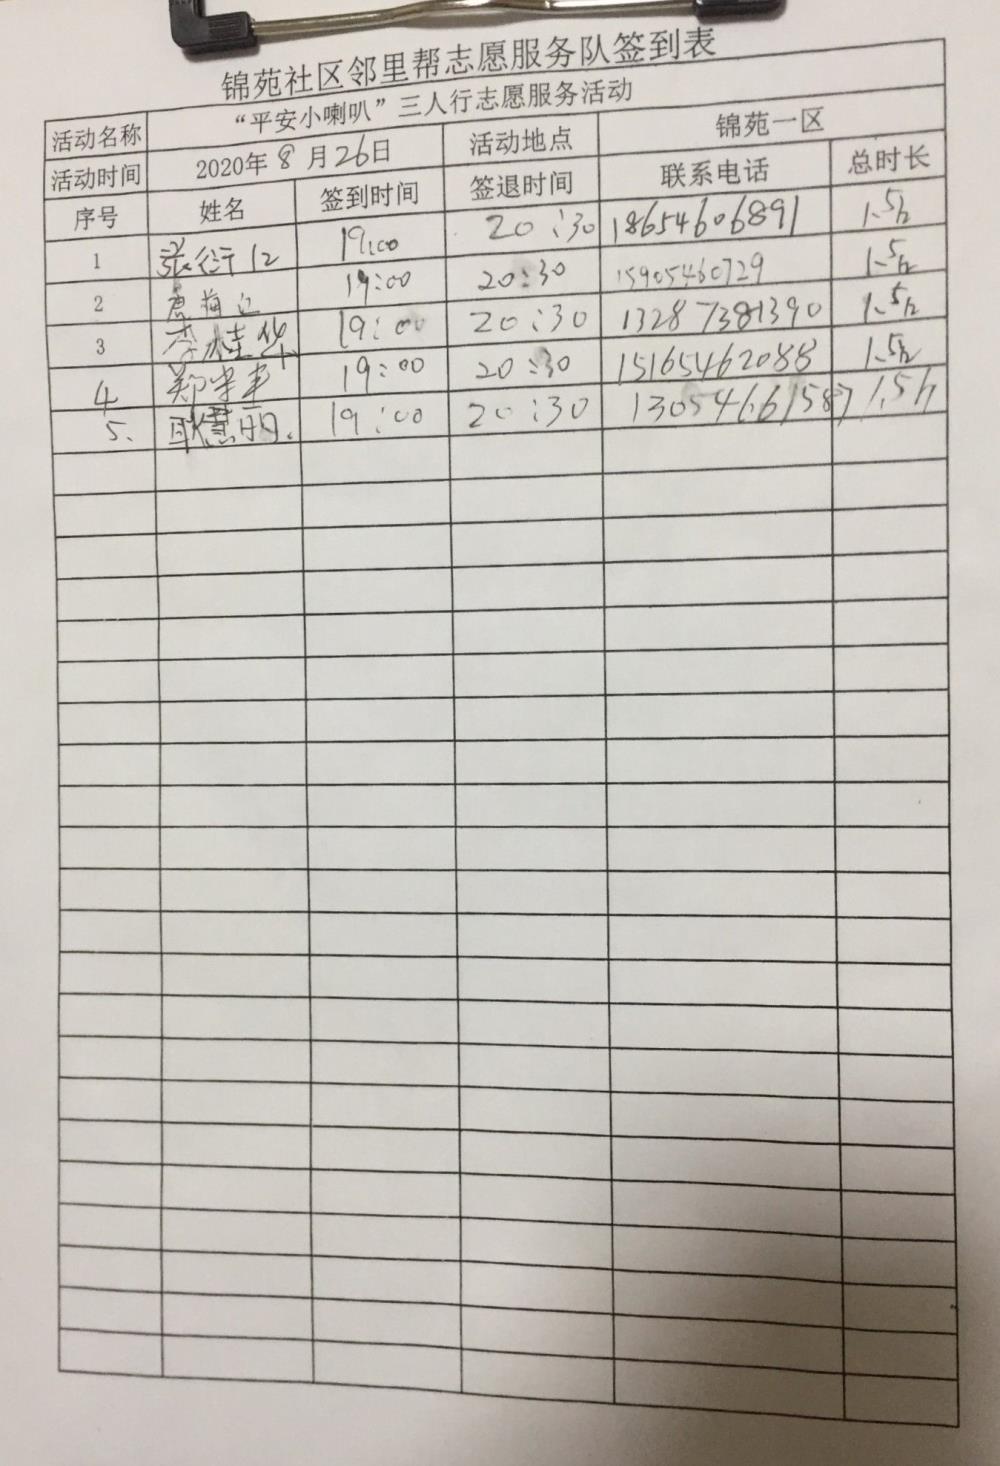 锦苑社区邻里帮志愿服务队签到表
活动名称 “平安小喇叭”三人行志愿服务活动
活动时间 2020年8月26日 活动地点 锦苑一区
序号 姓名 签到时间 签退时间 联系电话 总时长
1 张衍仁 19:00 20:30 18654606891 1.5h
2 19:00 20:30 15905460729 1.5h
3 李桂华 19:00 20:30 13287381390 1.5h
4 郑 19:00 20:30 15165462088 1.5h
5. 耿慧丽. 19:00 20:30 13054661587 1.5h